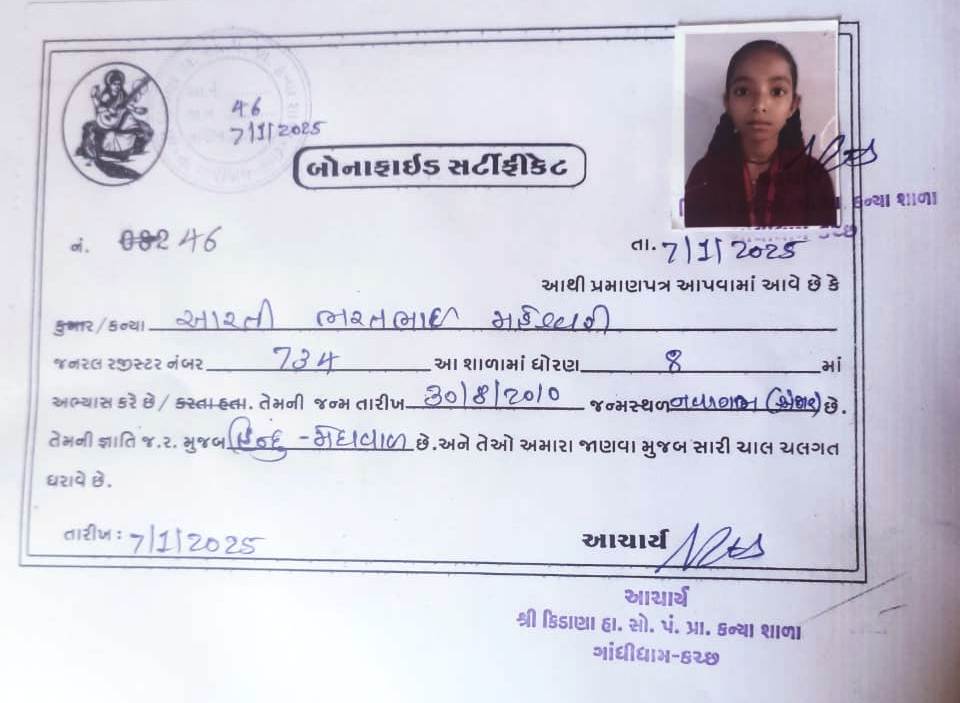 46
7/1/2025
બોનાફાઈડ સર્ટીફીકેટ
કન્યા શાળા
કચ્છ
નં. 082 46
તા. 7/1/2025
આથી પ્રમાણપત્ર આપવામાં આવે છે કે
કુમાર/કન્યા આરતી ભરતભાઈ મહેશ્વરી
જનરલ રજીસ્ટર નંબર 734 આ શાળામાં ધોરણ 8 માં
અભ્યાસ કરે છે / કરતા હતા. તેમની જન્મ તારીખ 30/8/2010 જન્મસ્થળ નવાગામ છે.
તેમની જ્ઞાતિ જ.ર. મુજબ હિન્દુ - મેઘવાળ છે.અને તેઓ અમારા જાણવા મુજબ સારી ચાલ ચલગત
ધરાવે છે.
તારીખ: 7/1/2025
આચાર્ય
આચાર્ય
શ્રી કિડાણા હા. સો. પં. પ્રા. કન્યા શાળા
ગાંધીધામ-કચ્છ